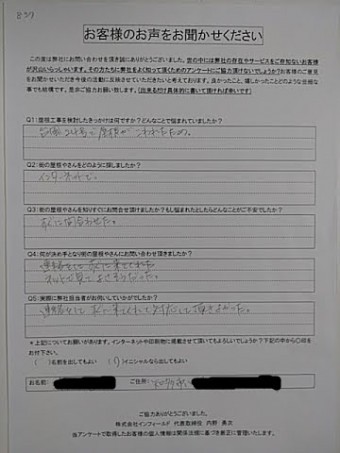 837
お客様のお声をお聞かせください
この度は弊社にお問い合わせを頂き誠にありがとうございました。世の中には弊社の存在やサービスをご存知ないお客様
が沢山いらっしゃいます。その方たちに弊社をよく知って頂くためのアンケートにご協力頂けないでしょうか?お客様のご意見
をお聞かせいただき今後の活動に反映させていただきたいと考えております。良かったこと、嬉しかったことなどの些細な
事でも結構です。是非ご協力お願い致します。(出来るだけ具体的に書いて頂ければ幸いです)
Q1:屋根工事を検討したきっかけは何ですか?どんなことで悩まれていましたか?
台風24号で屋根がこわれたため。
Q2:街の屋根やさんをどのように探しましたか?
インターネットで。
Q3:街の屋根やさんを知りすぐにお問合せ頂けましたか?もし悩まれたとしたらどんなことがご不安でしたか?
すぐに問合わせた。
Q4:何が決め手となり街の屋根やさんにお問い合わせ頂けましたか?
連絡をしてすぐに来てくれた
ネットで見てよさそうだった。
Q5:実際に弊社担当者がお伺いしていかがでしたか?
連絡をしてすぐ来てくれて対応して頂きよかった。
*上記についてお願いがあります。インターネットや印刷物に掲載させて頂いてもよろしいでしょうか?下記の中から○印を
お付け下さい。
( )名前を出してもよい (○)イニシャルなら出してもよい
お名前: ご住所:
ご協力ありがとうございました。
株式会社インフィールド 代表取締役 内野 勇次
当アンケートで取得したお客様の個人情報は関係法規に基づき厳正に管理いたします。